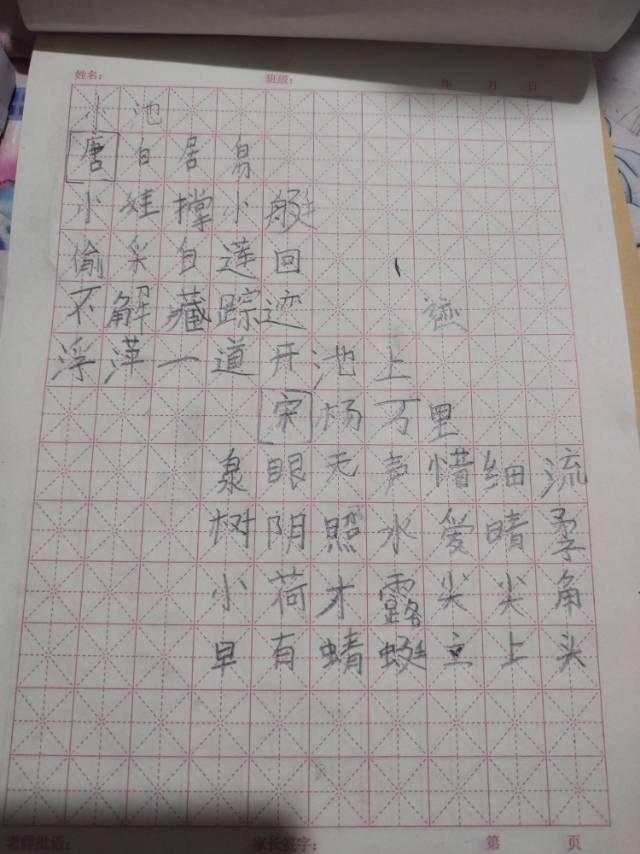 姓名： 班级： 年 月 日
小池
[唐]白居易
小娃撑小艇
偷采白莲回
不解藏踪迹 迹
浮萍一道开 池上
[宋]杨万里
泉眼无声惜细流
树阴照水爱晴柔
小荷才露尖尖角
早有蜻蜓立上头
老师批语： 家长签字： 第 页